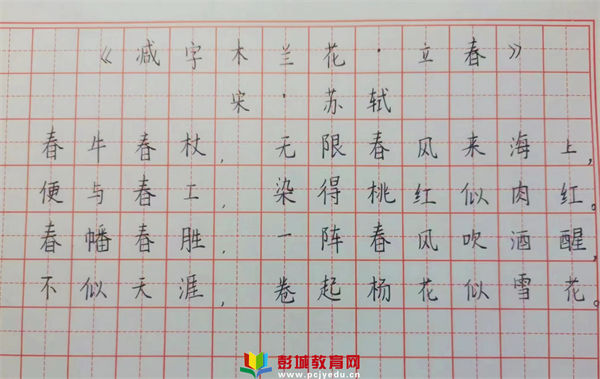 《减字木兰花·立春》
宋·苏轼
春牛春杖，无限春风来海上，
便与春工，染得桃红似肉红。
春幡春胜，一阵春风吹酒醒，
不似天涯，卷起杨花似雪花。
彭城教育网
www.pcjyedu.cn